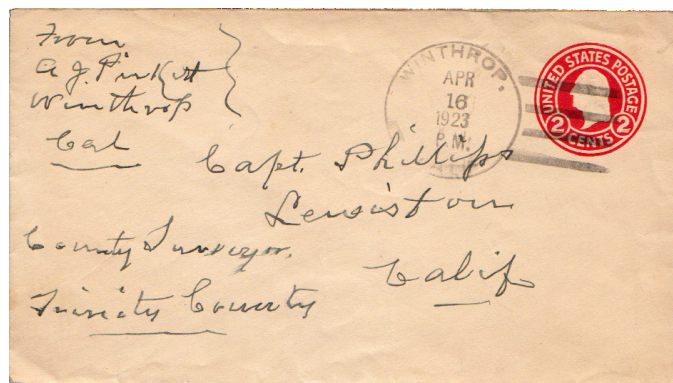 From
A. J. Pinkett
Winthrop
Cal
WINTHROP.
APR
16
1923
P.M.
UNITED STATES POSTAGE
2 CENTS 2
Capt. Phillips
Lewiston
County Surveyor,
Calif
Trinity County